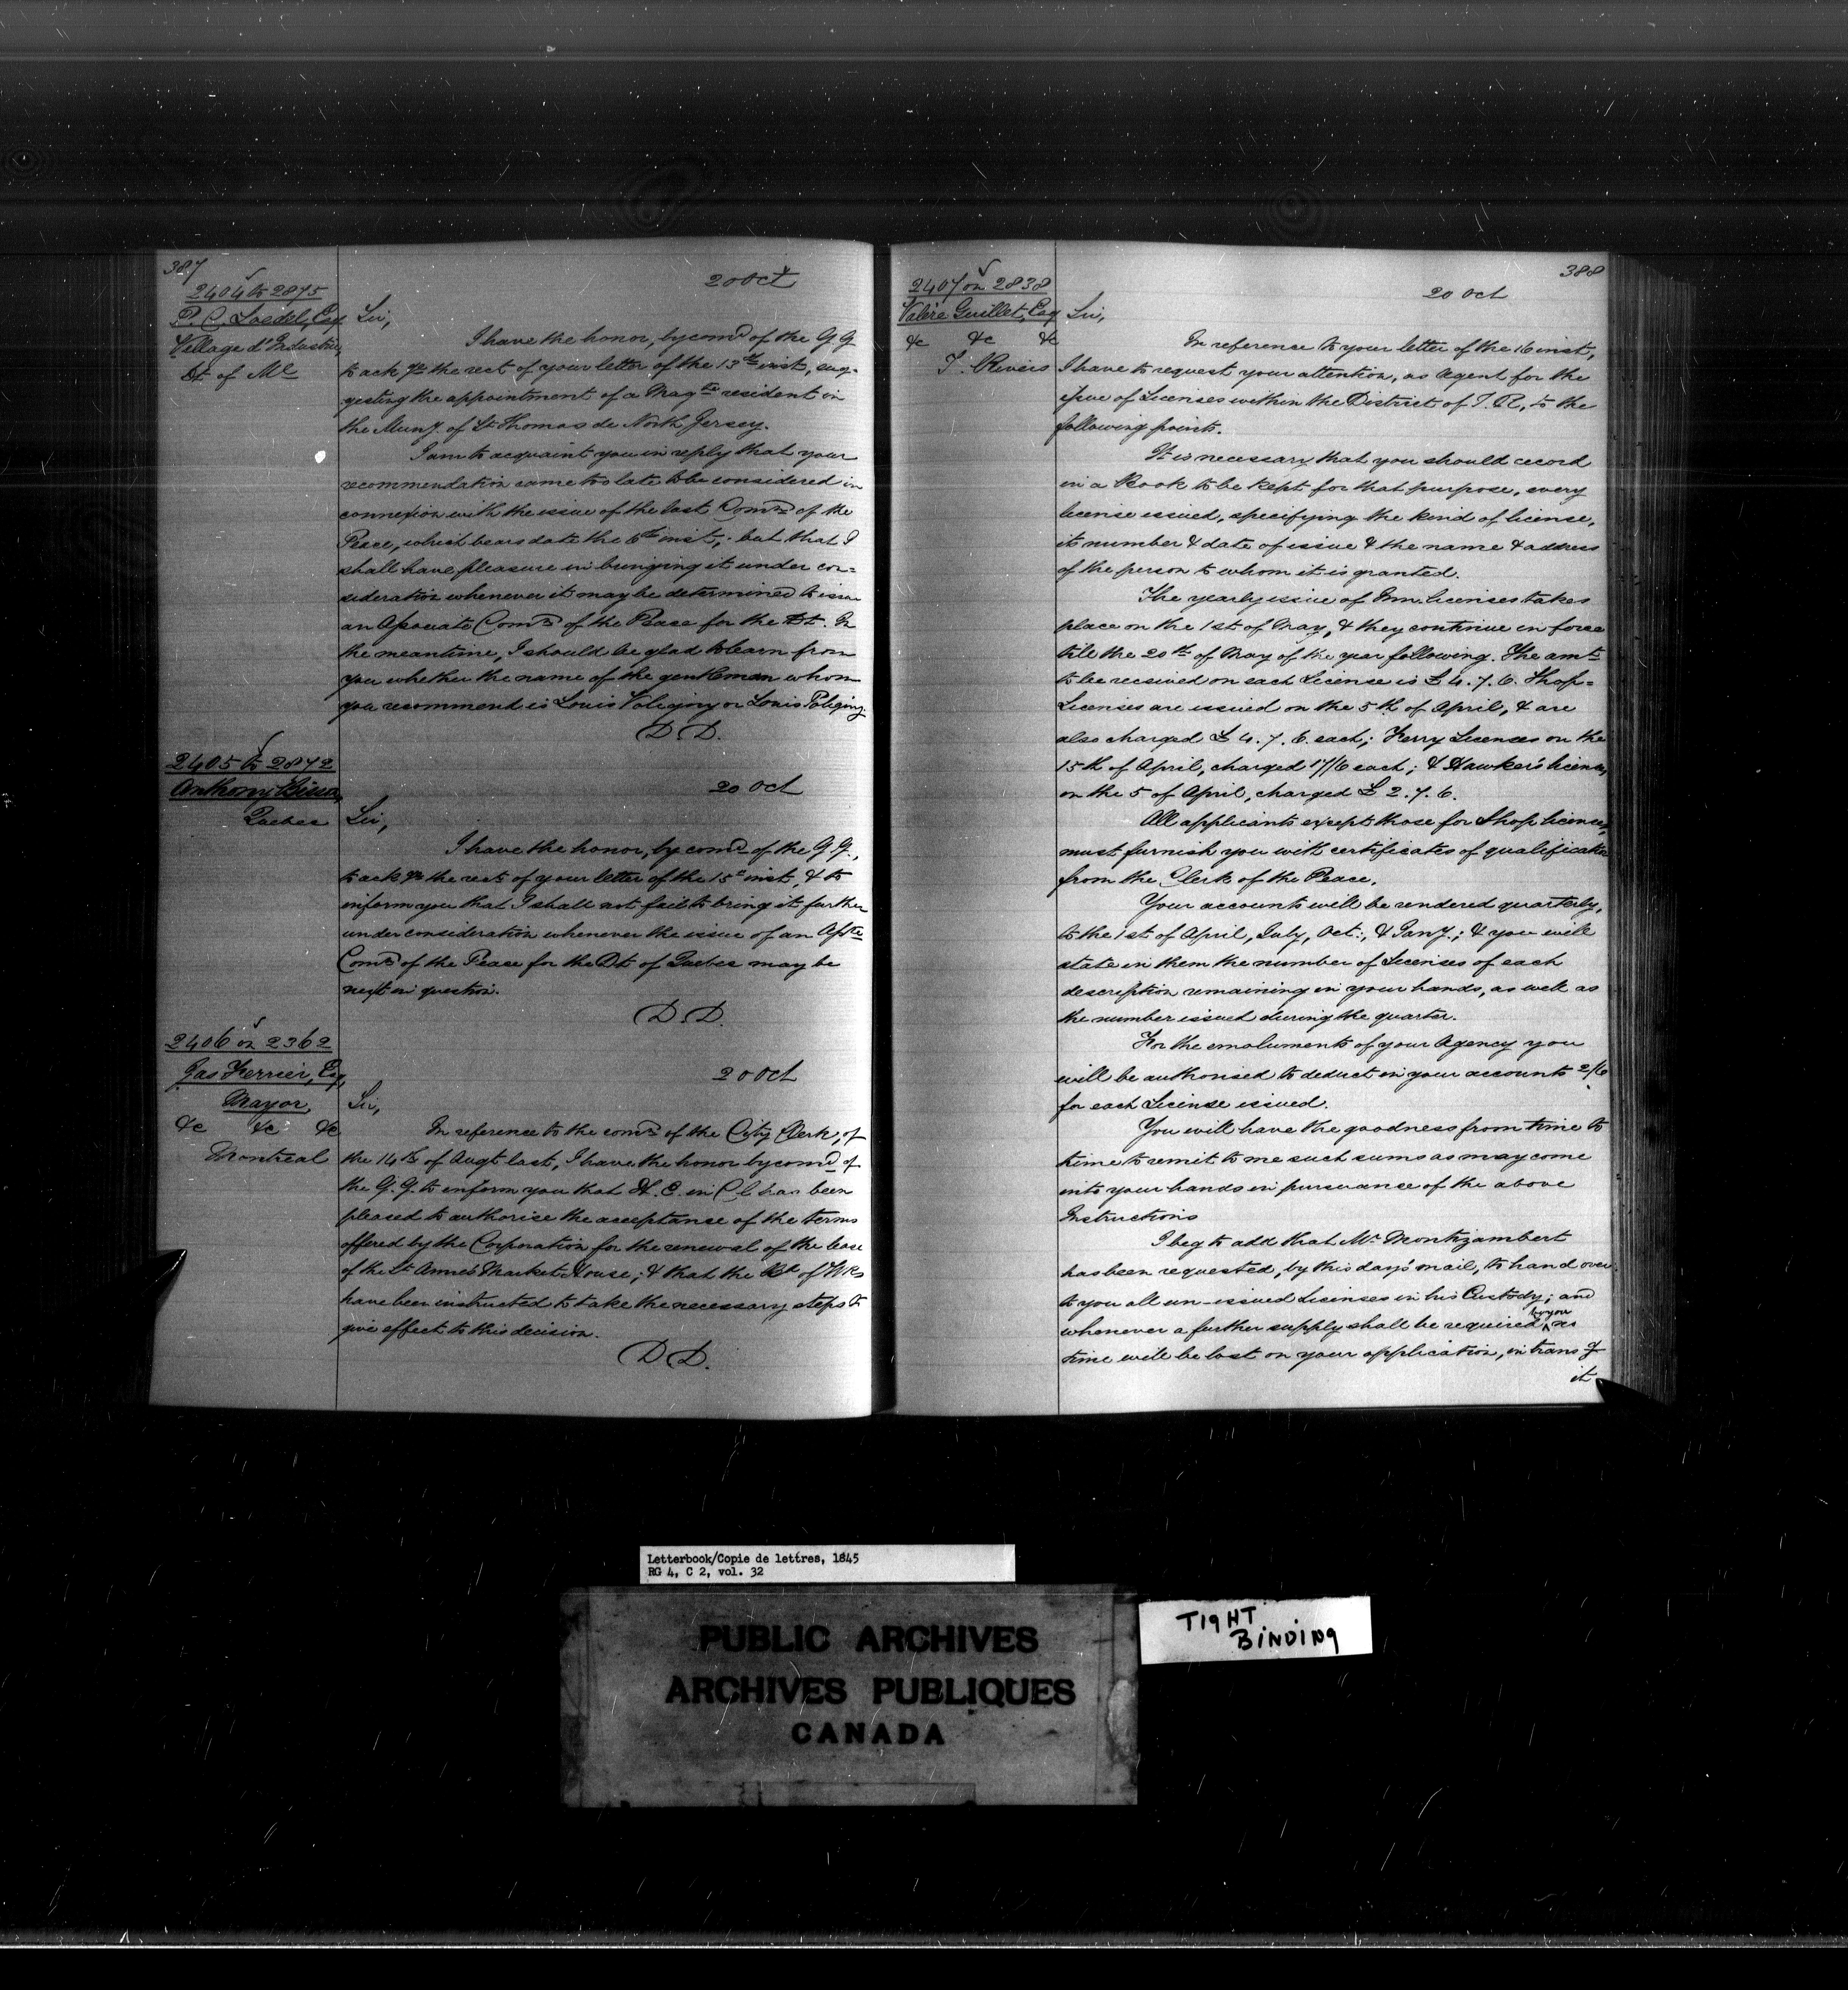 387
2404 to 2875
P. C. Loedel, Esq
Village d'Industrie,
Dt of Ml
20 Oct
Sir,
I have the honor, by comd of the G G
to ack ge the rect of your letter of the 13th inst, sug-
gesting the appointment of a Magte resident in
the Muny. of St Thomas de North Jersey.
I am to acquaint you in reply that your
recommendation came too late to be considered in
connexion with the issue of the last Comn of the
Peace, which bears date the 6th inst; but that I
shall have pleasure in bringing it under con-
sideration whenever it may be determined to issue
an Associate Comn of the Peace for the Dt. In
the meantime, I should be glad to learn from
you whether the name of the gentleman whom
you recommend is Louis Voligny or Louis Poligny.
D. D.
2405 to 2872
Anthony
Quebec
20 Oct
Sir,
I have the honor, by comd of the G G.,
to ack ge the rect of your letter of the 15th inst, & to
inform you that I shall not fail to bring it further
under consideration whenever the issue of an Asste
Comn of the Peace for the Dt of Quebec may be
next in question.
D. D.
2406 on 2362
Jas Ferrier, Esq,
Mayor,
&c &c &c
Montreal
20 Oct
Sir,
In reference to the comn of the City Clerk, of
the 14th of Augt last, I have the honor by comd of
the G. G. to inform you that H. E. in Cl has been
pleased to authorise the acceptance of the terms
offered by the Corporation for the renewal of the lease
of the St Anne's Market House; & that the Bd of Wks
have been instructed to take the necessary steps to
give effect to this decision.
D D.
388
2407 on 2838
Valère Guillet, Esq
&c &c &c
T. Rivers
20 Oct
Sir,
In reference to your letter of the 16 inst,
I have to request your attention, as Agent for the
issue of Licenses within the District of T. R, to the
following points.
It is necessary that you should record
in a Book to be kept for that purpose, every
license issued, specifying the kind of license,
its number & date of issue & the name & address
of the person to whom it is granted.
The yearly issue of Inn-licenses takes
place on the 1st of May, & they continue in force
till the 20th of May of the year following. The amt
to be received on each License is £4. 7. 6. Shop-
Licenses are issued on the 5th of April, & are
also charged £4. 7. 6 each; Ferry Licenses on the
15th of April, charged 17/6 each; & Hawker's licenses,
on the 5 of April, charged £2. 7. 6.
All applicants except those for Shop licenses,
must furnish you with certificates of qualification
from the Clerk of the Peace.
Your accounts will be rendered quarterly,
to the 1st of April, July, Oct:, & Jany.; & you will
state in them the number of Licenses of each
description remaining in your hands, as well as
the number issued during the quarter.
For the emoluments of your Agency you
will be authorised to deduct in your accounts 2/6
for each License issued.
You will have the goodness from time to
time to remit to me such sums as may come
into your hands in pursuance of the above
Instructions
I beg to add that Mr Montizambert
has been requested, by this day's mail, to hand over
to you all un-issued Licenses in his Custody; and
whenever a further supply shall be required by you no
time will be lost on your application, in trans g
it
Letterbook/Copie de lettres, 1845
RG 4, C 2, vol. 32
PUBLIC ARCHIVES
ARCHIVES PUBLIQUES
CANADA
TIGHT
BINDING